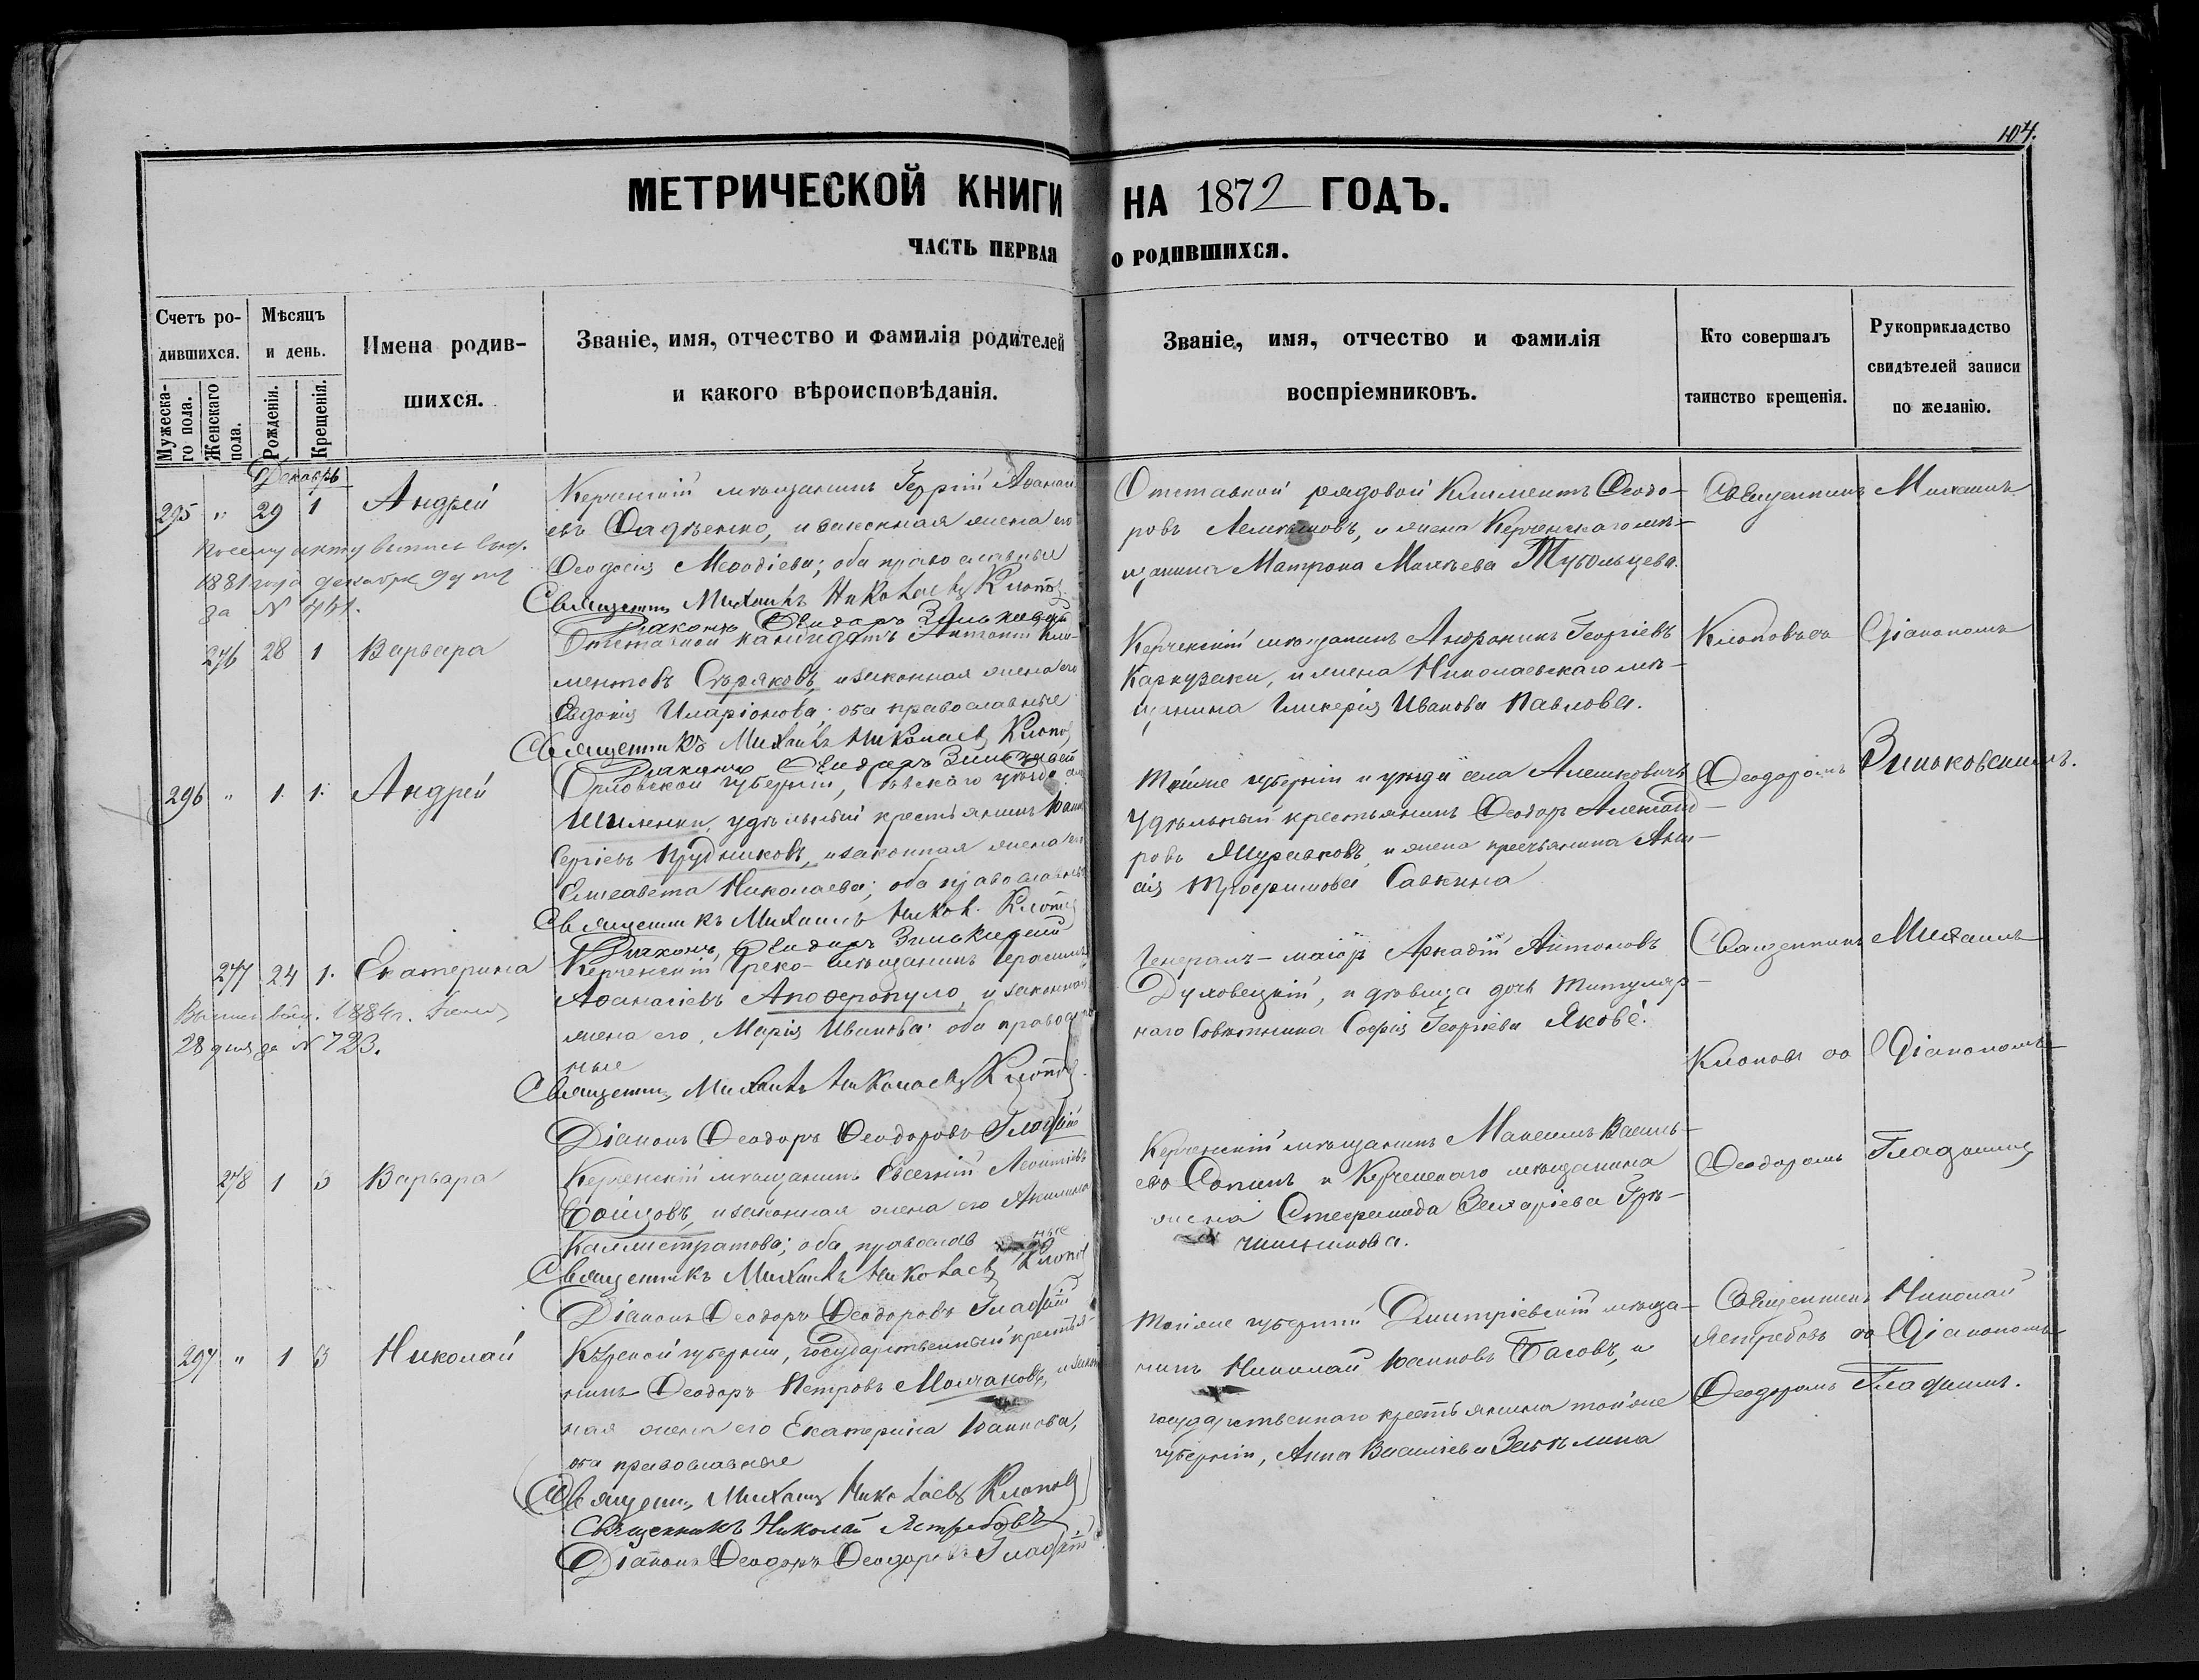 104.
МЕТРИЧЕСКОЙ КНИГИ НА 1872 ГОДЪ.
ЧАСТЬ ПЕРВАЯ О РОДИВШИХСЯ.
Счетъ ро-
дившихся.
Мужеска-
го пола.
Женскаго
пола.
Мѣсяцъ
и день.
Рожденія.
Крещенія.
Имена родив-
шихся.
Званіе, имя, отчество и фамилія родителей
и какого вѣроисповѣданія.
Званіе, имя, отчество и фамилія
воспріемниковъ.
Кто совершалъ
таинство крещенія.
Рукоприкладство
свидѣтелей записи
по желанію.
Декабрь
295 " 29 1 Андрей
1881 года декабря
за N
Керченскій мѣщанинъ
евъ Фадѣенко, и законная жена его
Ѳеодосія Меѳодіева; оба православные
Священникъ Михаилъ Николаевъ Клоповъ
Діаконъ Ѳеодоръ Зиньковскій
Отставной рядовой Климентъ Ѳеодо-
ровъ и жена Керченскаго мѣ-
щанина Матрона
Священникъ Михаилъ
276 28 1 Варвара
Отставной кандидатъ Антоній Кли-
ментовъ Сѣряковъ, и законная жена его
Евдокія Иларіонова; оба православные
Священникъ Михаилъ Николаевъ Клоповъ
Діаконъ Ѳеодоръ Зиньковскій
Керченскій мѣщанинъ Андроникъ Георгіевъ
и жена Николаевскаго мѣ-
щанина Гликерія Иванова Павлова.
Клоповъ съ Діакономъ
296 " 1. 1. Андрей
Орловской губерніи, Сѣвскаго уѣзда
удѣльный крестьянинъ Іоаннъ
Сергіевъ Прудниковъ, и законная жена его
Елисавета Николаева; оба православные
Священникъ Михаилъ Никол. Клоповъ
Діаконъ Ѳеодоръ Зиньковскій
Тойже губерніи и уѣзда села Алешковичь
Удѣльный крестьянинъ Ѳеодоръ Александ-
ровъ Журавковъ, и жена крестьянина
сія Трофимова Савкина
Ѳеодоромъ Зиньковскимъ.
277 24 1. Екатерина
1884 г.
28 дня за N 723.
Керченскій Греко-мѣщанинъ Герасимъ
Аѳанасіевъ Апоѳеропуло, и законная
жена его, Марія Иванова; оба православ-
ные
Священникъ Михаилъ Николаевъ Клоповъ
Діаконъ Ѳеодоръ Ѳеодоровъ Гладкій
Генералъ-маіоръ Аркадій Антоновъ
Духовецкій, и дѣвица дочь титуляр-
наго Совѣтника Софія Георгіева Якове.
Священникъ Михаилъ
Клоповъ со Діакономъ
278 1 3 Варвара
Керченскій мѣщанинъ Евсевій Леонтіевъ
Бойцовъ, и законная жена его Акилина
Каллистратова; оба православ ные
Священникъ Михаилъ Николаевъ Клоповъ
Діаконъ Ѳеодоръ Ѳеодоровъ Гладкій
Керченскій мѣщанинъ Максимъ Василь-
евъ и Керченскаго мѣщанина
жена Стефанида Захаріева Грѣ-
чишникова.
Ѳеодоромъ Гладкимъ
297 " 1 3 Николай
Курской губерніи, Государственный крестья-
нинъ Ѳеодоръ Петровъ Молчановъ, и закон-
ная жена его Екатерина Іоаннова,
оба православные
Священникъ Михаилъ Николаевъ Клоповъ
Священникъ Николай Ястребовъ
Діаконъ Ѳеодоръ Ѳеодоровъ Гладкій
Тойже губерніи Дмитріевскій мѣща-
нинъ Николай Іоанновъ Басовъ, и
государственнаго крестьянина тойже
губерніи, Анна Василіева
Священникъ Николай
Ястребовъ со Діакономъ
Ѳеодоромъ Гладкимъ.